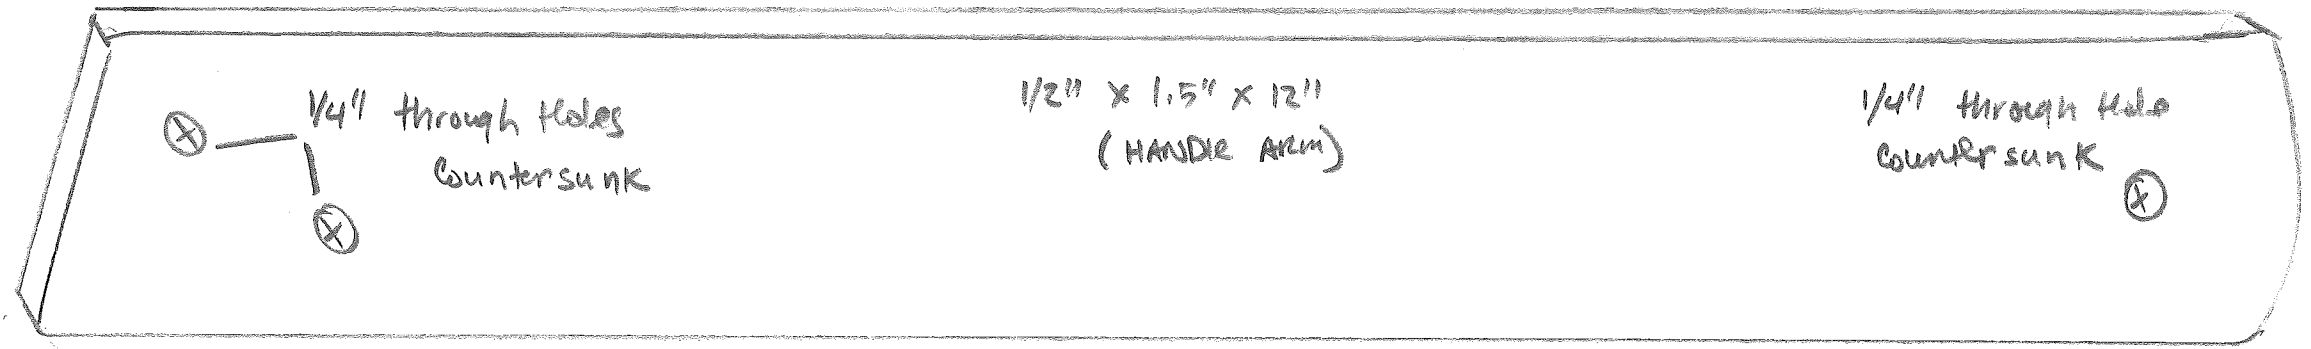 1/4" through Holes
Countersunk
1/2" x 1.5" x 12"
(HANDLE ARM)
1/4" through Hole
Countersunk